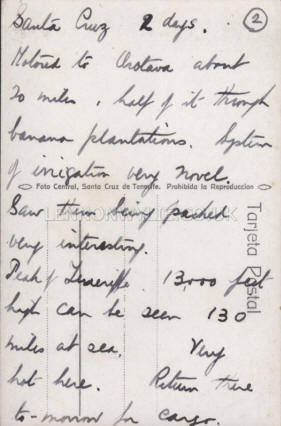 Santa Cruz 2 days. (2)
Motored to Orotava about
20 miles, half of it through
banana plantations. System
of irrigation very novel.
Foto Central, Santa Cruz de Tenerife. Prohibida la Reproduccion
Saw them being packed
very interesting.
Peak of Teneriffe. 13,000 feet
high can be seen 130
miles at sea. Very
hot here. Return there
to-morrow for cargo.
Tarjeta Postal